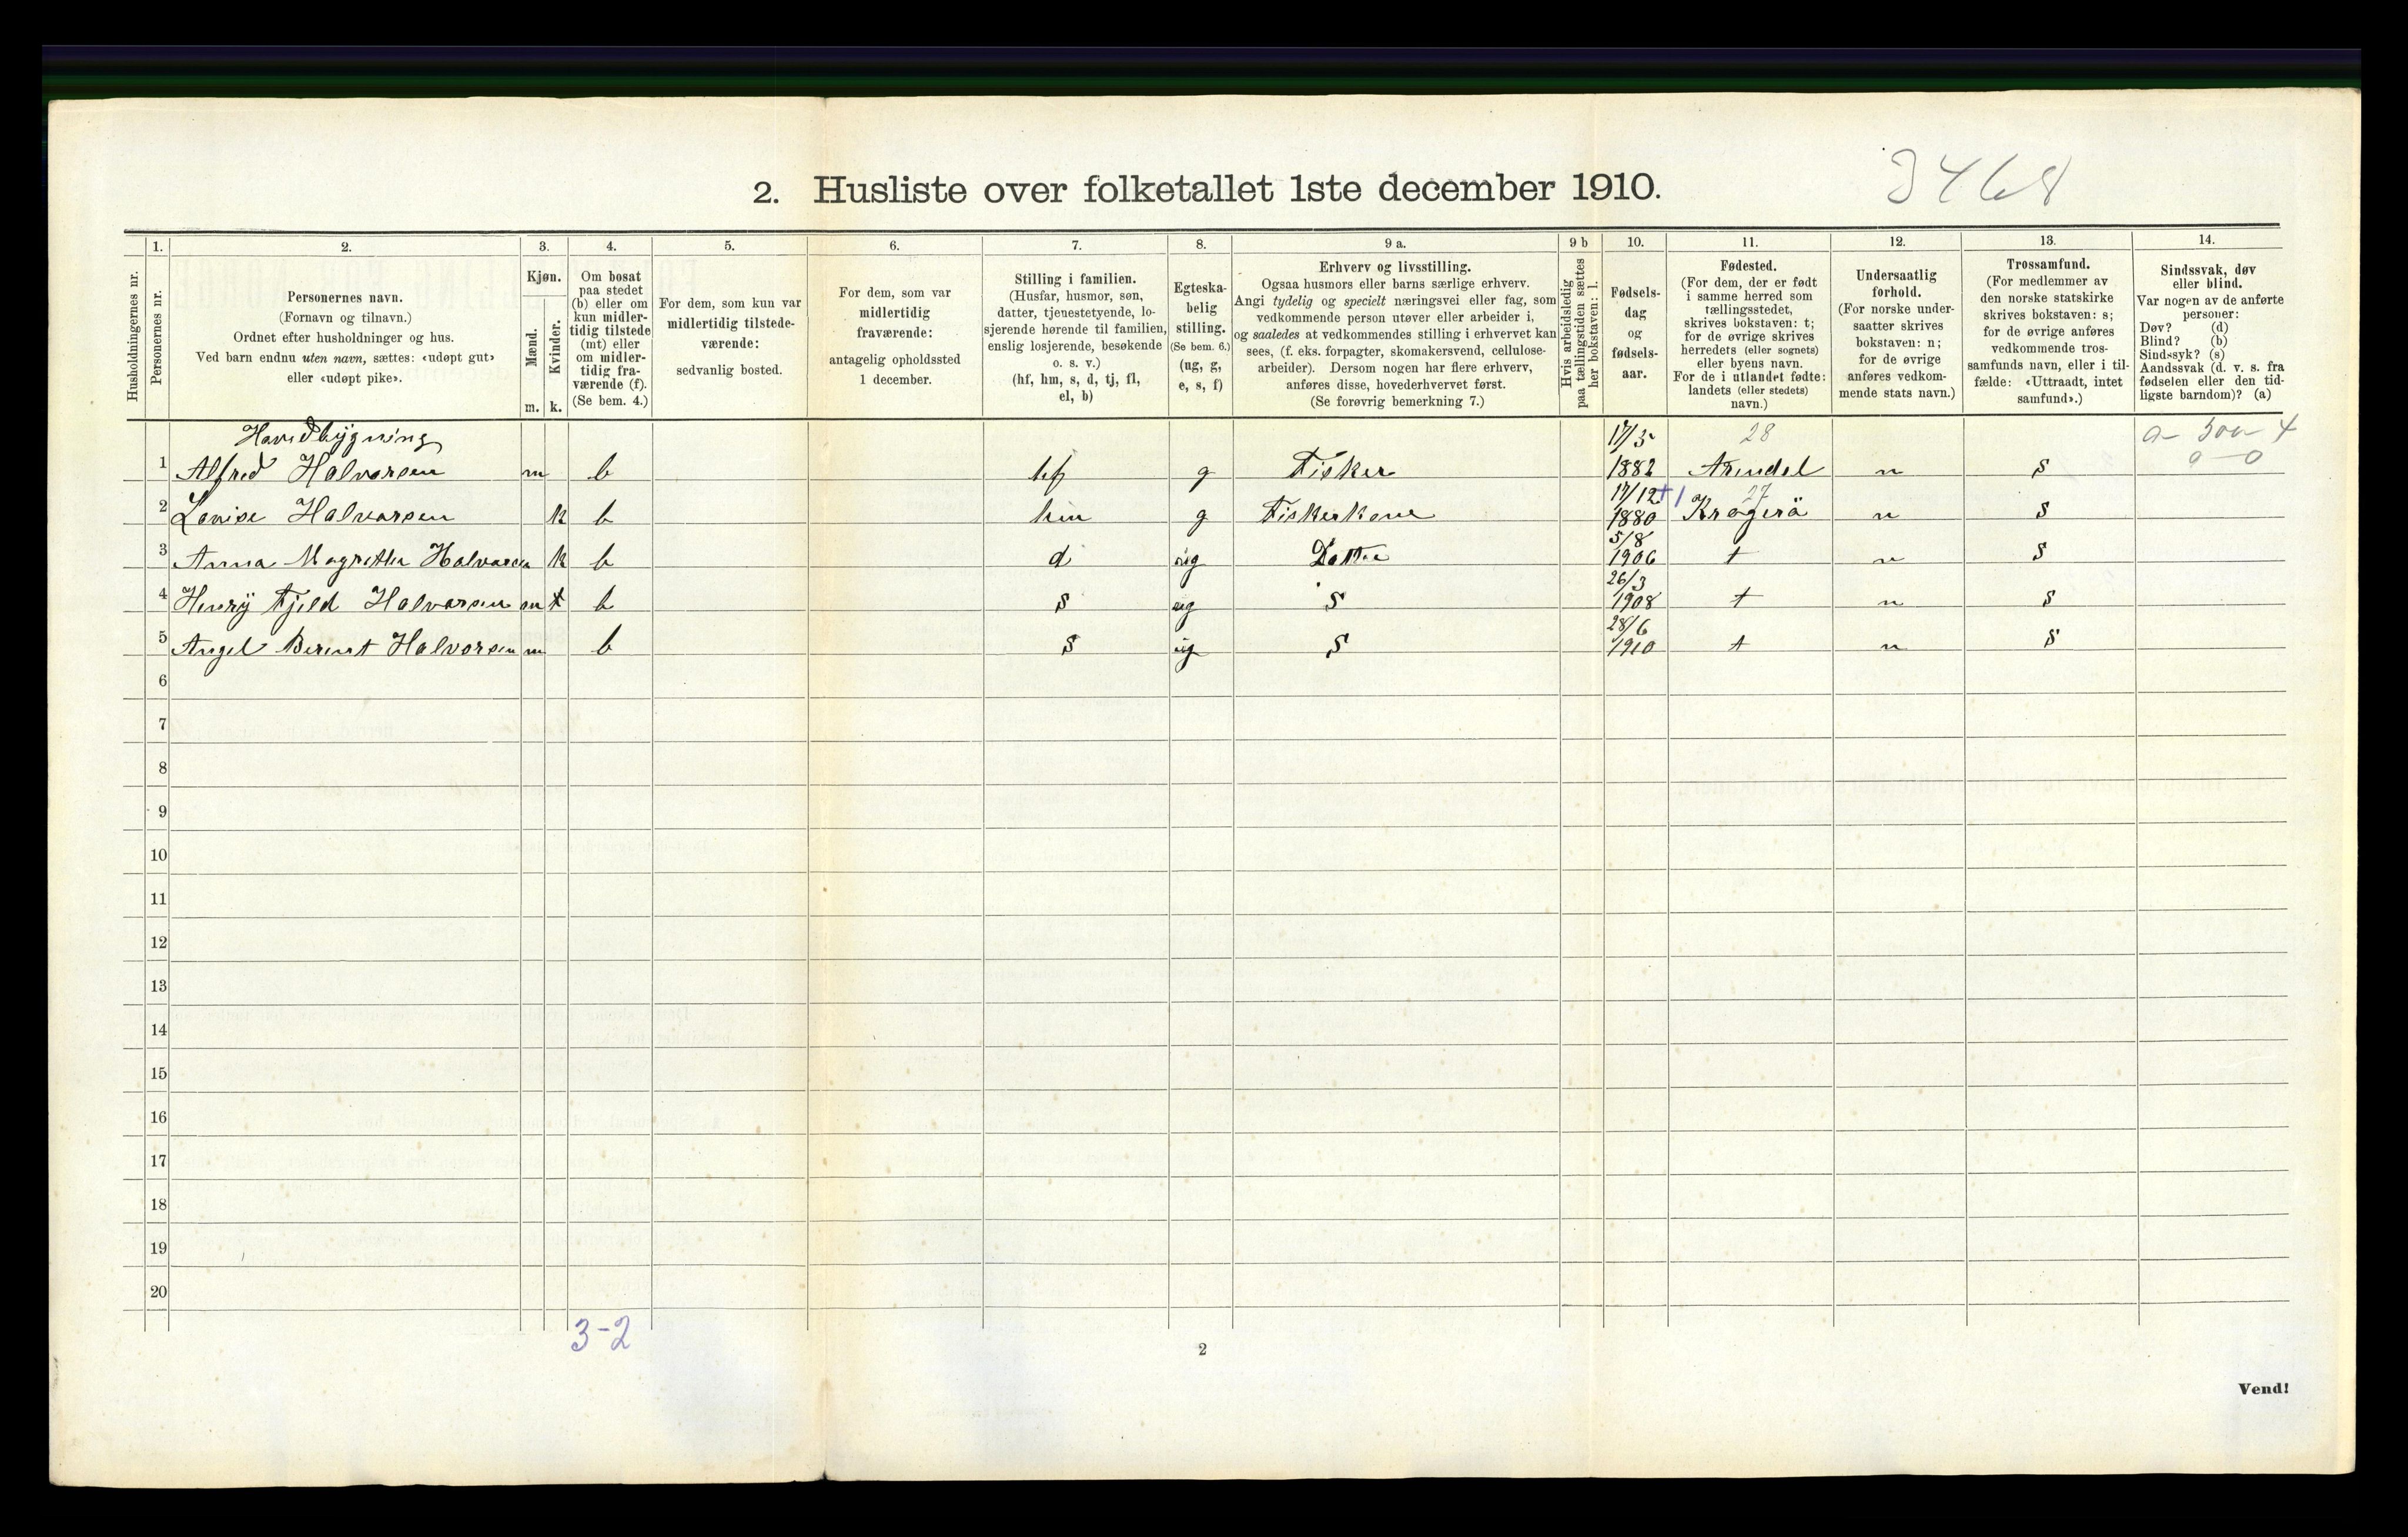 2. Husliste over folketallet 1ste december 1910.
3468
1. 2. 3. 4. 5. 6. 7. 8. 9 a. 9 b 10. 11. 12. 13. 14.
Husholdningernes nr.
Personernes nr.
Personernes navn.
(Fornavn og tilnavn.)
Ordnet efter husholdninger og hus.
Ved barn endnu uten navn, sættes: «udøpt gut»
eller «udøpt pike».
Kjøn.
Mænd.
Kvinder.
m. k.
Om bosat
paa stedet
(b) eller om
kun midler-
tidig tilstede
(mt) eller
om midler-
tidig fra-
værende (f).
(Se bem. 4.)
For dem, som kun var
midlertidig tilstede-
værende:
sedvanlig bosted.
For dem, som var
midlertidig
fraværende:
antagelig opholdssted
1 december.
Stilling i familien.
(Husfar, husmor, søn,
datter, tjenestetyende, lo-
sjerende hørende til familien,
enslig losjerende, besøkende
o. s. v.)
(hf, hm, s, d, tj, fl,
el, b)
Egteska-
belig
stilling.
(Se bem. 6.)
(ug, g,
e, s, f)
Erhverv og livsstilling.
Ogsaa husmors eller barns særlige erhverv.
Angi tydelig og specielt næringsvei eller fag, som
vedkommende person utøver eller arbeider i,
og saaledes at vedkommendes stilling i erhvervet kan
sees, (f. eks. forpagter, skomakersvend, cellulose-
arbeider). Dersom nogen har flere erhverv,
anføres disse, hovederhvervet først.
(Se forøvrig bemerkning 7.)
Hvis arbeidsledig
paa tællingstiden sættes
her bokstaven: l.
Fødsels-
dag
og
fødsels-
aar.
Fødested.
(For dem, der er født
i samme herred som
tællingsstedet,
skrives bokstaven: t;
for de øvrige skrives
herredets (eller sognets)
eller byens navn.
For de i utlandet fødte:
landets (eller stedets)
navn.)
Undersaatlig
forhold.
(For norske under-
saatter skrives
bokstaven: n;
for de øvrige
anføres vedkom-
mende stats navn.)
Trossamfund.
(For medlemmer av
den norske statskirke
skrives bokstaven: s;
for de øvrige anføres
vedkommende tros-
samfunds navn, eller i til-
fælde: «Uttraadt, intet
samfund».)
Sindssvak, døv
eller blind.
Var nogen av de anførte
personer:
Døv? (d)
Blind? (b)
Sindssyk? (s)
Aandssvak (d. v. s. fra
fødselen eller den tid-
ligste barndom)? (a)
Hovedbygning 17/5 28
1 Alfred Halvorsen m b hf g Fisker 1882 Arendal n s 0-0
17/12 +1 27
2 Lovise Halvorsen k b hm g Fiskerkone 1880 Kragerö n s
5/8
3 Anna Magrethe Halvorsen k b d ug Datter 1906 t n s
26/3
4 Henrÿ Fjeld Halvorsen m b s ug S 1908 t n s
28/6
5 Angel Berent Halvorsen m b s ug S 1910 t n s
6
7
8
9
10
11
12
13
14
15
16
17
18
19
20
3-2
2
Vend!